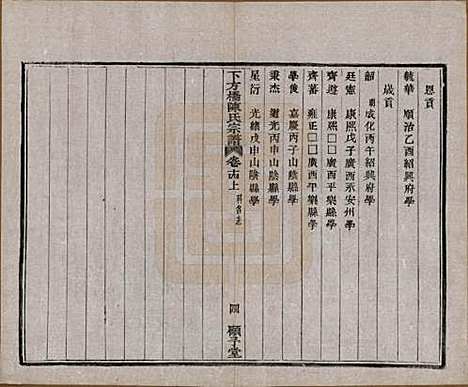 恩貢
毓華 順治乙酉紹興府學
歲貢
韶 明成化丙午紹興府學
廷憲 康熙戊子廣西永安州學
齊遵 康熙□□廣西平樂縣學
齊蕃 雍正□□廣西平樂縣學
學俊 嘉慶丙子山陰縣學
秉杰 光丙申山陰縣學
星衍 光緒戊申山陰縣學
下方橋陳氏宗譜 卷十四上 科名志 四 願子堂